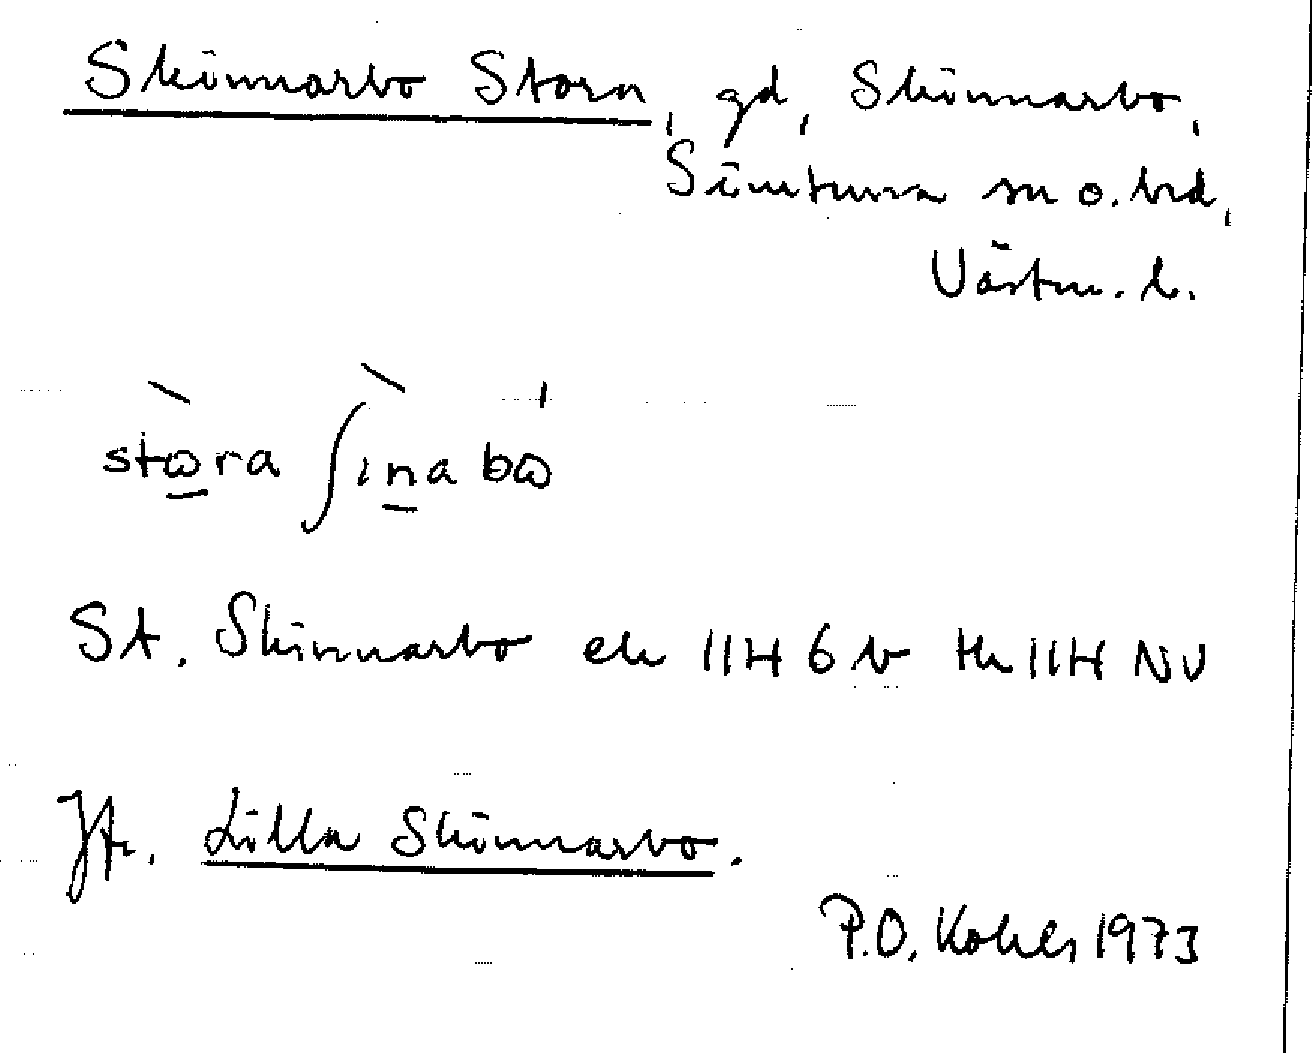 Skinnarbo Stora, gd, Skinnarbo,
Simtuna sn o. hd,
Västm. l.
stɷ̀ra ʃìna bɷ
St. Skinnarbo ek 11H 6b tk 11H NV
Jfr. Lilla Skinnarbo.
P.O. Kohls 1973